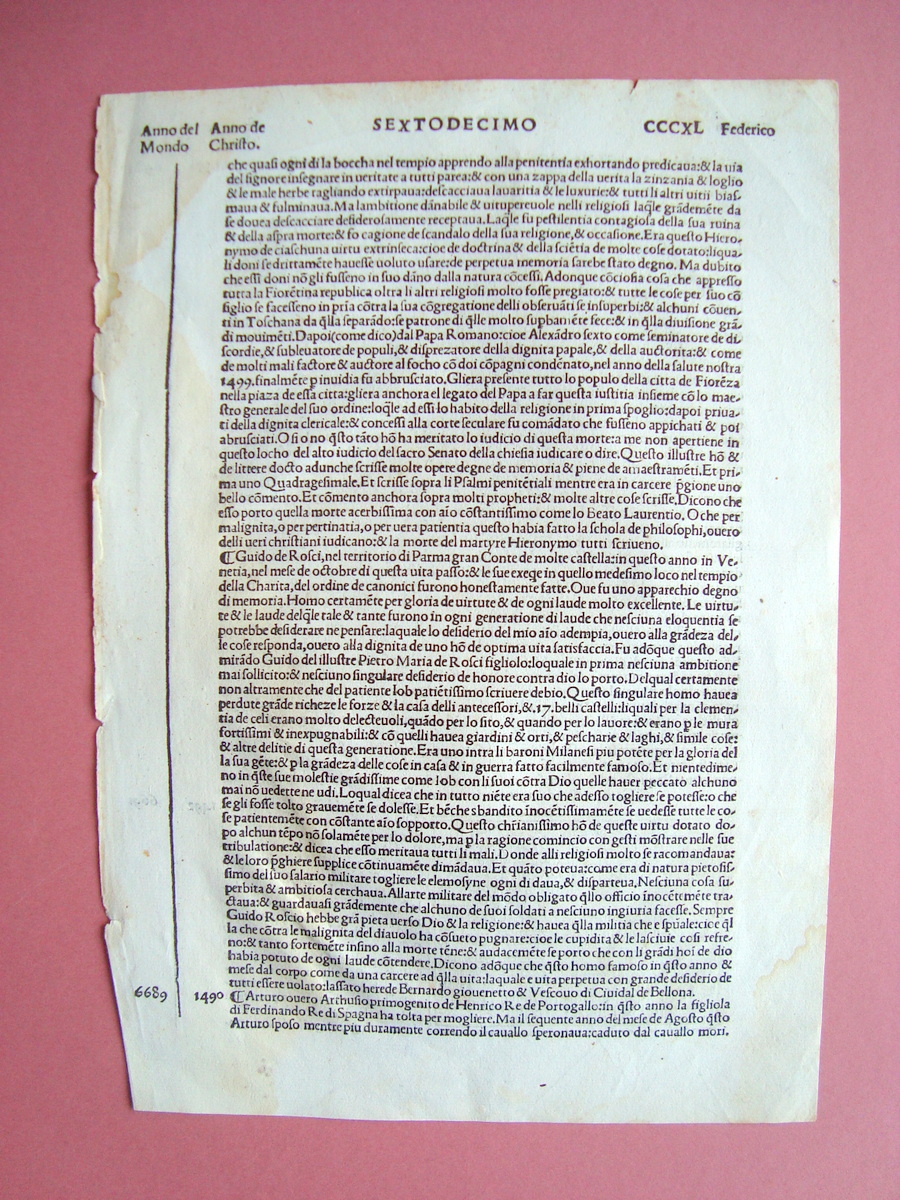 Anno del Anno de SEXTODECIMO CCCXL Federico
Mondo Christo.
che quaſi ogni di la boccha nel tempio apprendo alla penitentia exhortando predicaua:& la uia
del ſignore inſegnare in ueritate a tutti parea:& con una zappa della uerita la zinzania & loglio
& le male herbe tagliando extirpaua:deſcacciaua lauaritia & le luxurie:& tutti li altri uitii biaſ-
maua & fulminaua.Ma lambitione dānabile & uitupereuole nelli religioſi laq̄le grādemēte da
ſe douea deſcacciare deſideroſamente receptaua.Laq̄le fu peſtilentia contagioſa della ſua ruina
& della aſpra morte:& fo cagione de ſcandalo della ſua religione,& occaſione.Era queſto Hiero-
nymo de ciaſchuna uirtu extrinſeca:cioe de doctrina & della ſciētia de molte coſe dotato:liqua-
li doni ſe drittamēte haueſſe uoluto uſare:de perpetua memoria ſarebe ſtato degno. Ma dubito
che eſſi doni nō gli fuſſeno in ſuo dāno dalla natura cōceſſi.Adonque cōcioſia coſa che appreſſo
tutta la Fiorētina republica oltra li altri religioſi molto foſſe pregiato:& tutte le coſe per ſuo cō
ſiglio ſe faceſſeno in pria cōtra la ſua cōgregatione delli obſeruāti ſe inſuperbi:& alchuni cōuen-
ti in Toſchana da q̄lla ſeparādo:ſe patrone di q̄lle molto ſuꝑbamēte fece:& in q̄lla diuiſione grā-
di mouimēti.Dapoi(come dico)dal Papa Romano:cioe Alexādro ſexto come ſeminatore de di
ſcordie,& ſubleuatore de populi,& diſprezatore della dignita papale,& della auctorita:& come
de molti mali factore & auctore al focho cō doi cōpagni condēnato,nel anno della ſalute noſtra
1499.finalmēte p inuidia fu abbruſciato.Gliera preſente tutto lo populo della citta de Fiorēza
nella piaza de eſſa citta:gliera anchora el legato del Papa a far queſta iuſtitia inſieme cō lo mae-
ſtro generale del ſuo ordine:loq̄le ad eſſi lo habito della religione in prima ſpoglio:dapoi priua-
ti della dignita clericale:& conceſſi alla corte ſeculare fu comādato che fuſſeno appichati & poi
abruſciati.O ſi o no q̄ſto tāto hō ha meritato lo iudicio di queſta morte:a me non apertiene in
queſto locho del alto iudicio del ſacro Senato della chieſia iudicare o dire.Queſto illuſtre hō &
de littere docto adunche ſcriſſe molte opere degne de memoria & piene de amaeſtramēti.Et pri-
ma uno Quadrageſimale.Et ſcriſſe ſopra li Pſalmi penitētiali mentre era in carcere p̄gione uno
bello cōmento.Et cōmento anchora ſopra molti propheti:& molte altre coſe ſcriſſe.Dicono che
eſſo porto quella morte acerbiſſima con aīo cōſtantiſſimo come lo Beato Laurentio. O che per
malignita,o per pertinatia,o per uera patientia queſto habia fatto la ſchola de philoſophi,ouero
delli ueri chriſtiani iudicano:& la morte del martyre Hieronymo tutti ſcriueno.
¶Guido de Roſci,nel territorio di Parma gran Conte de molte caſtella:in queſto anno in Ve-
netia,nel meſe de octobre di queſta uita paſſo:& le ſue exeqe in quello medeſimo loco nel tempio
della Charita,del ordine de canonici furono honeſtamente fatte.Oue fu uno apparechio degno
di memoria.Homo certamēte per gloria de uirtute & de ogni laude molto excellente. Le uirtu-
te & le laude delq̄le tale & tante furono in ogni generatione di laude che neſciuna eloquentia ſe
potrebbe deſiderare ne penſare:laquale lo deſiderio del mio aīo adempia,ouero alla grādeza del-
le coſe reſponda,ouero alla dignita de uno hō de optima uita ſatisfaccia.Fu adōque queſto ad-
mirādo Guido del illuſtre Pietro Maria de Roſci figliolo:loquale in prima neſciuna ambitione
mai ſollicito:& neſciuno ſingulare deſiderio de honore contra dio lo porto.Delqual certamente
non altramente che del patiente Iob patiētiſſimo ſcriuere debio.Queſto ſingulare homo hauea
perdute grāde richeze le forze & la caſa delli anteceſſori,&.17.belli caſtelli:liquali per la clemen-
tia de celi erano molto delecteuoli,quādo per lo ſito,& quando per lo lauore:& erano p le mura
fortiſſimi & inexpugnabili:& cō quelli hauea giardini & orti,& peſcharie & laghi,& ſimile coſe:
& altre delitie di queſta generatione.Era uno intra li baroni Milaneſi piu potēte per la gloria del
la ſua gēte:& p la grādeza delle coſe in caſa & in guerra fatto facilmente famoſo.Et mentedime-
no in q̄ſte ſue moleſtie grādiſſime come Iob con li ſuoi cōtra Dio quelle hauer peccato alchuno
mai nō uedette ne udi.Loqual dicea che in tutto niēte era ſuo che adeſſo togliere ſe poteſſe:o che
ſe gli foſſe tolto grauemēte ſe doleſſe.Et bēche sbandito inocētiſſimamēte ſe uedeſſe tutte le co-
ſe patientemēte con cōſtante aīo ſopporto.Queſto chr̄ianiſſimo hō de queſte uirtu dotato do-
po alchun tēpo nō ſolamēte per lo dolore,ma p la ragione comincio con geſti mōſtrare nelle ſue
tribulatione:& dicea che eſſo meritaua tutti li mali.Donde alli religioſi molto ſe racomandaua:
& le loro p̄ghiere ſupplice cōtinuamēte dimādaua.Et quāto poteua:come era di natura pietoſiſ-
ſimo del ſuo ſalario militare togliere le elemoſyne ogni di daua,& diſparteua.Neſciuna coſa ſu-
perbita & ambitioſa cerchaua.Allarte militare del mōdo obligato q̄llo officio inocētemēte tra-
ctaua:& guardauaſi grādemente che alchuno de ſuoi ſoldati a neſciuno ingiuria faceſſe. Sempre
Guido Roſcio hebbe grā pieta uerſo Dio & la religione:& hauea q̄lla militia che e ſpūale:cioe q̄l
la che cōtra le malignita del diauolo ha cōſueto pugnare:cioe le cupidita & le laſciuie coſi refre-
no:& tanto fortemēte inſino alla morte tēne:& audacemēte ſe porto che con li grādi hoī de dio
habia potuto de ogni laude cōtendere.Dicono adōque che q̄ſto homo famoſo in q̄ſto anno &
meſe dal corpo come da una carcere ad q̄lla uita:laquale e uita perpetua con grande deſiderio de
tutti eſſere uolato:laſſato herede Bernardo giouenetto & Veſcouo di Ciuidal de Bellona.
6689 1490 ¶Arturo ouero Arthuſio primogenito de Henrico Re de Portogallo:in q̄ſto anno la figliola
di Ferdinando Re di Spagna ha tolta per mogliere.Ma il ſequente anno del meſe de Agoſto q̄ſto
Arturo ſpoſo mentre piu duramente correndo il cauallo ſperonaua:caduto dal cauallo mori.